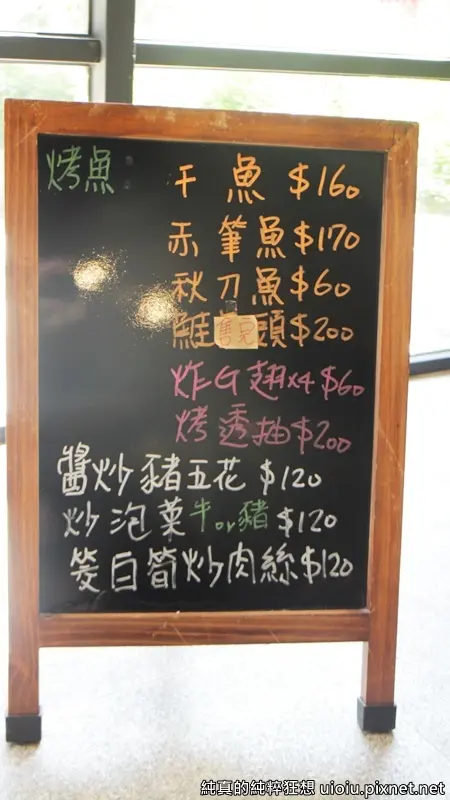 烤魚 干魚 $160
赤筆魚 $170
秋刀魚 $60
鮭售完頭 $200
炸G翅x4 $60
烤透抽 $200
醬炒豬五花 $120
炒泡菜 牛or豬 $120
筊白筍炒肉絲 $120
純真的純粹狂想 uioiu.pixnet.net